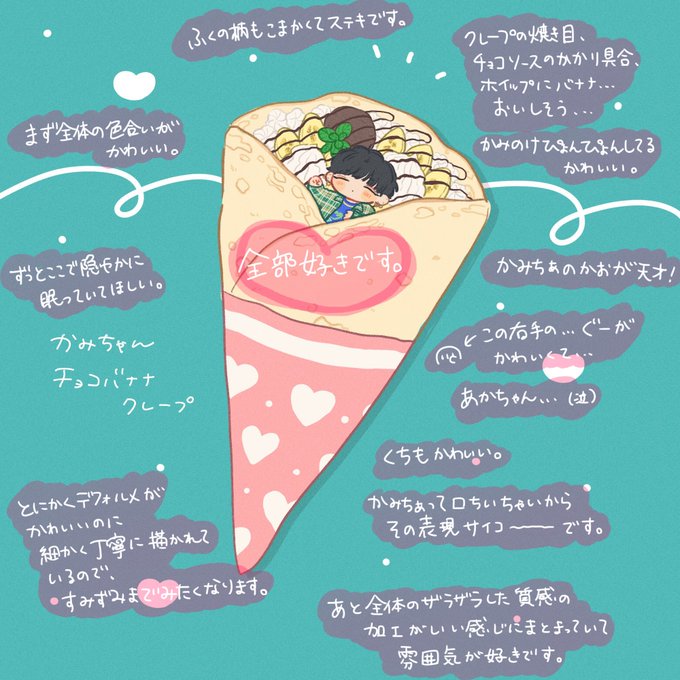 ふくの柄もこまかくてステキです。
クレープの焼き目、
チョコソースのかかり具合、
ホイップにバナナ...
おいしそう...
まず全体の色合いが
かわいい。
かみのけぴょんぴょんしてる
かわいい。
全部好きです。
ずとここで隠やかに
眠っていてほしい。
かみちぁのかおが天才!
かみちゃん
チョコバナナ
クレープ
←この右手の...ぐーが
かわいくて...
あかちゃん... (泣)
くちもかわいい。
かみちぁって口ちいちゃいから
その表現サイコーーです。
とにかくデフォルメが
かわいいのに
細かく丁寧に描かれて
いるので、
すみずみまでみたくなります。
あと全体のザラザラした質感の
加工がいい感じにまとまっていて
雰囲気が好きです。